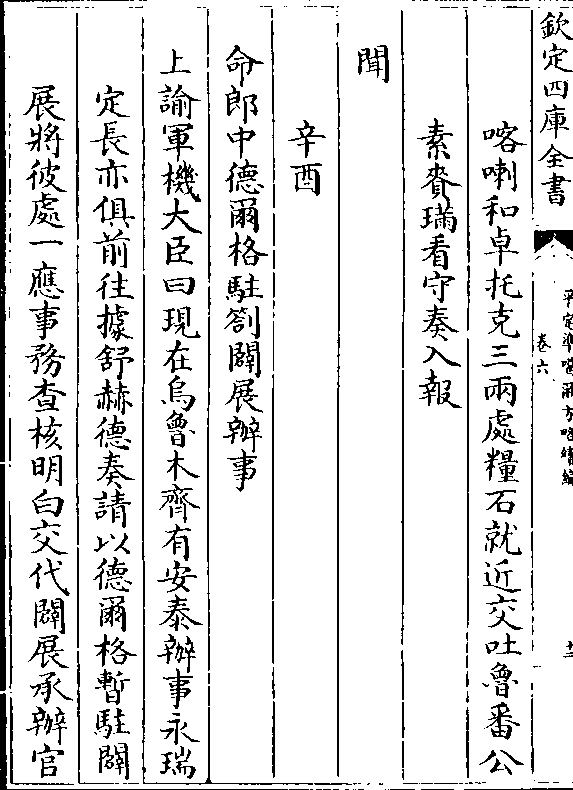 欽定四庫全書
平定準噶爾方略續編
卷六
十二
喀喇和卓托克三兩處糧石就近交吐魯番公
素賚璊看守奏入報
聞
辛酉
命郎中德爾格駐劄闢展辦事
上諭軍機大臣曰現在烏魯木齊有安泰辦事永瑞
定長亦俱前往據舒赫德奏請以德爾格暫駐闢
展將彼處一應事務查核明白交代闢展承辦官